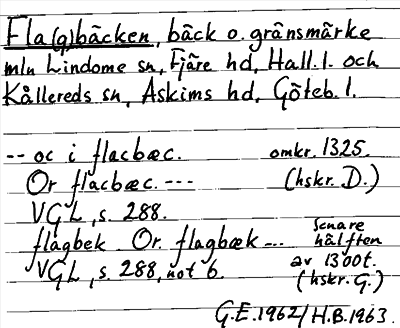 Fla(g)bäcken, bäck o. gränsmärke
mln Lindome sn, Fjäre hd, Hall. l. och
Kållereds sn, Askims hd, Göteb. l.
-- oc i flacbæc. omkr. 1325.
Or flacbæc. --- (hskr. D.)
VGL, s. 288.
flagbek. Or. flagbæk --- senare hälften
VGL, s. 288, not 6. av 1300t.
(hskr. G.)
G.E. 1962/H.B. 1963.